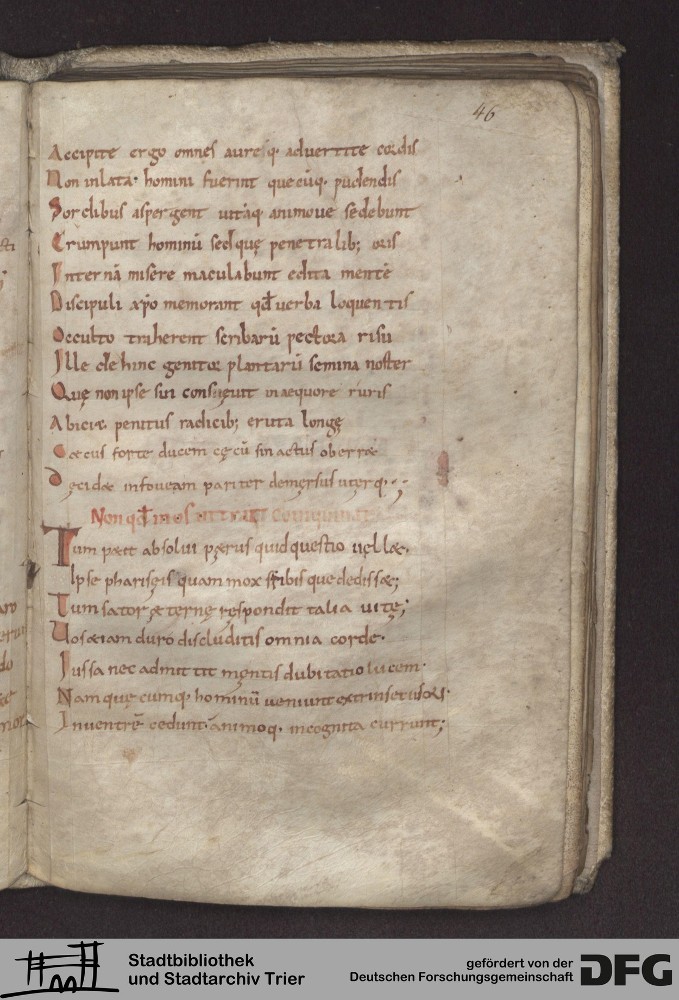 46
Accipite ergo omnes auresq· advertite cordis
Non inlata· homini fuerint quecūq· pudendis
Sordibus aspergent vitāq animove sedebunt
Erumpunt hominū sed quę penetralib; oris
Internā misere maculabunt edita mentē
Discipuli xp̄o memorant qd̄ verba loquentis
Occulto traherent scribarū pectora risu
Ille dehinc genitor plantarū semina noster
Quę non ipse sui in aequore ruris
Abiciet penitus radicib; eruta longę
Cæcus forte ducem cęcū si nactus oberræt
Decidæt in foveam pariter demersus uterq·
Non qđ in os intrat coinquinat
Tum petit absolvi petrus quid questio vellæt·
Ipse phariseis quam mox scribisque dedissæt;
Tum sator æternę respondit talia vitę;
Vos etiam duro discluditis omnia corde·
Iussa nec admittit mentis dubitatio lucem·
Nam quę cumq· hominū veniunt extrinsetus ori·
In ventrē cedunt· animoq· incognita currunt;
Stadtbibliothek
und Stadtarchiv Trier
gefördert von der
Deutschen Forschungsgemeinschaft
DFG